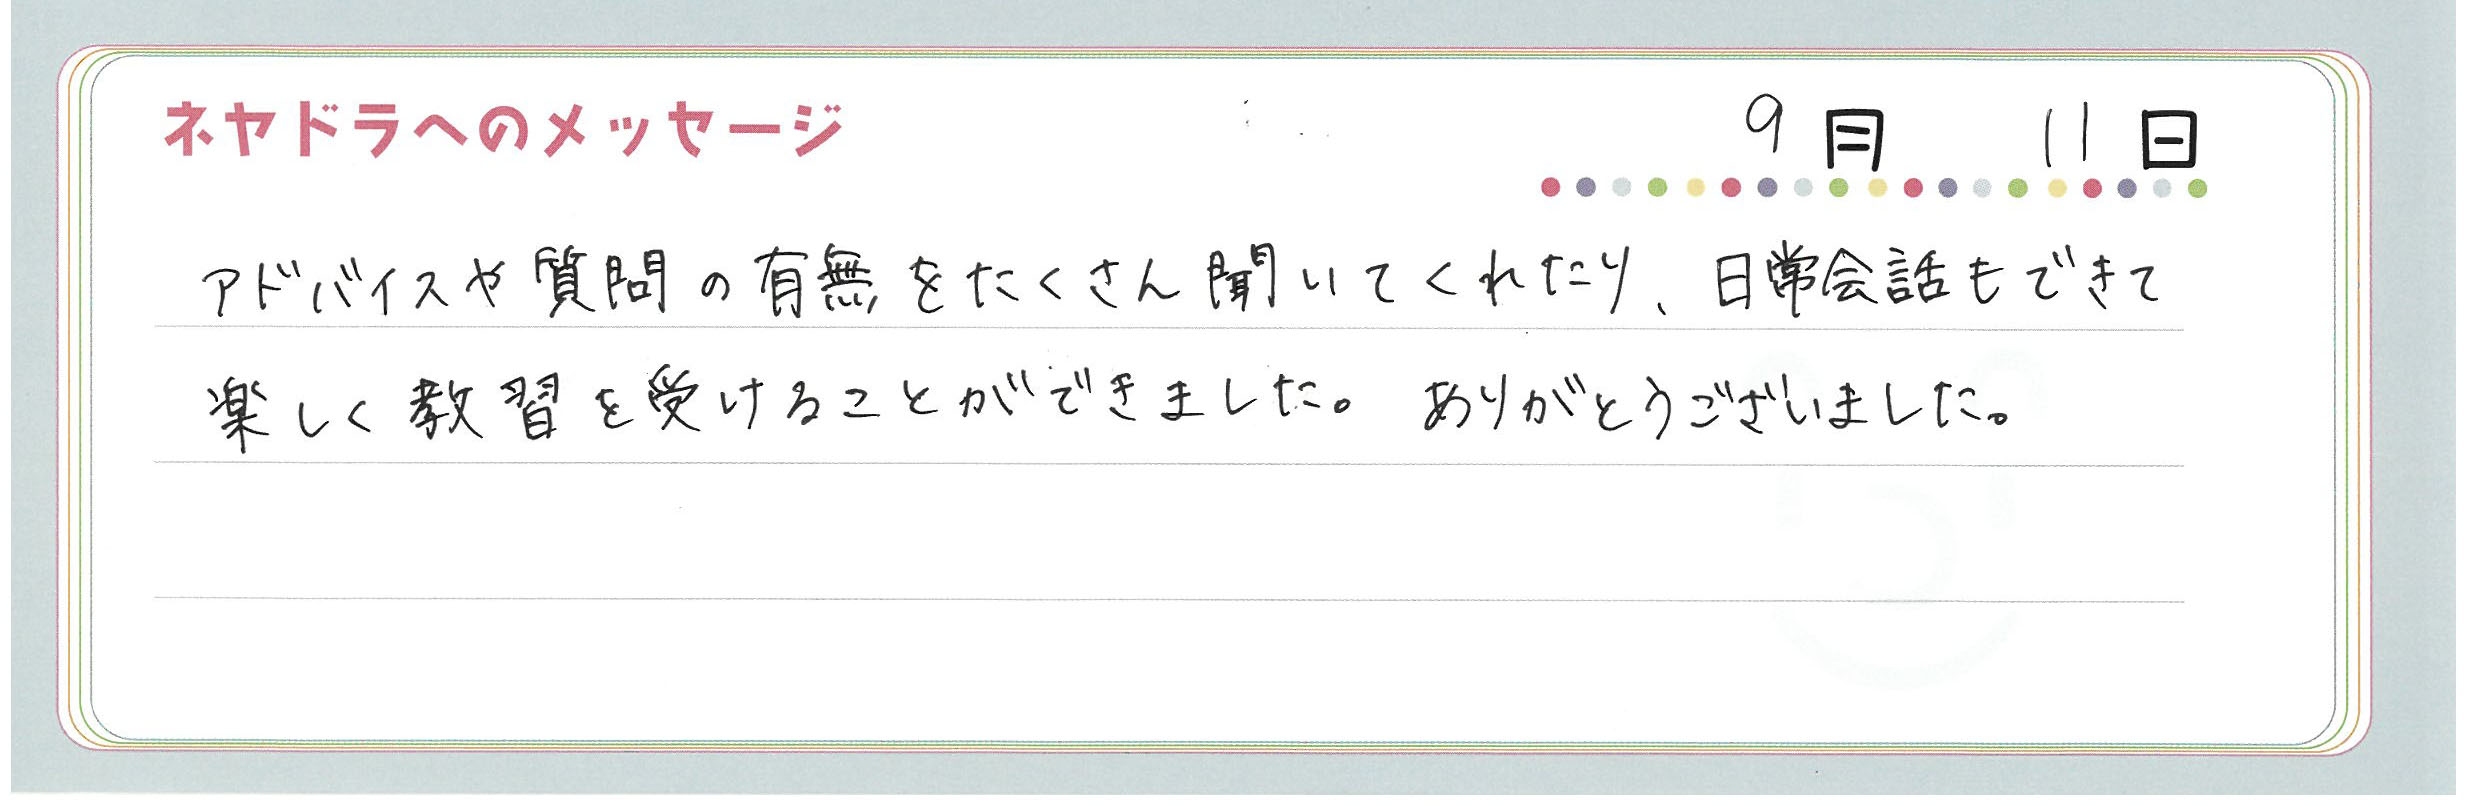 ネヤドラへのメッセージ
9月 11日
アドバイスや質問の有無をたくさん聞いてくれたり、日常会話もできて
楽しく教習を受けることができました。ありがとうございました。